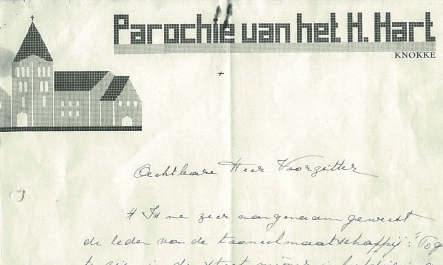 Parochie van het H. Hart
KNOKKE
Achtbare Heer Voorzitter
't Is me zeer aangenaam geweest
de leden van de toneelmaatschappij: "Vog
te zien in de